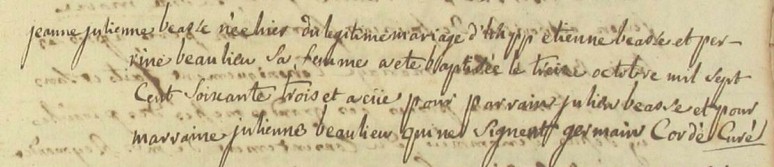 jeanne julienne beasse née hier du legitime mariage d' etienne beasse et per-
rine beaulieu sa femme a ete baptisée le treize octobre mil sept
Cent soixante trois et a eüe pour parrain julien beasse et pour
marraine julienne beaulieu qui ne signent germain Cordé Curé